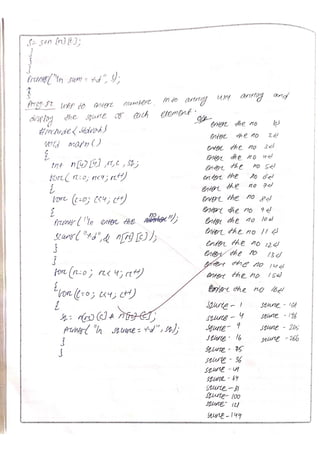 S = s+n [r][c];
}
}
}
printf("\n sum = %d", s);
}
}
WAP to enter number in to array and
display the square of each element.
O/P
#include<stdio.h>
void main()
{
int n[4][4], r, c, sq;
for(r=0; r<4; r++)
{
for (c=0; c<4; c++)
{
printf("\n enter the no");
scanf("%d", & n[r][c]);
}
}
for(r=0; r<4; r++)
{
for(c=0; c<4; c++)
{
sq = n[r][c] * n[r][c];
printf("\n square = %d", sq);
}
}
enter the no 1
enter the no 2
enter the no 3
enter the no 4
enter the no 5
enter the no 6
enter the no 7
enter the no 8
enter the no 9
enter the no 10
enter the no 11
enter the no 12
enter the no 13
enter the no 14
enter the no 15
Enter the no 16
square - 1
square - 4
square - 9
square - 16
square - 25
square - 36
square - 49
square - 64
square - 81
square - 100
square - 121
square - 144